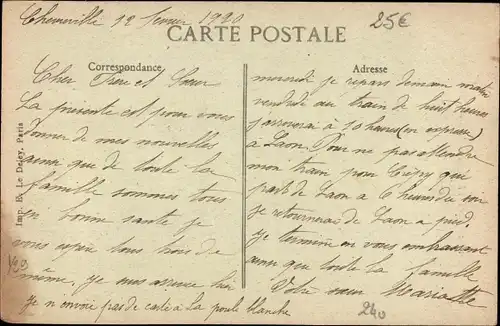 Chenneville 12 fevrier 1920
25€
CARTE POSTALE
Correspondance
Cher Frere et Sœur
La presente est pour vous
donner de mes nouvelles
ainsi que de toute la
famille sommes tous
en bonne sante je
vous espere tous trois de
même, je suis arrivée hier
je n'envoie pas de carte a La poule blanche
Adresse
mercredi je repars demain matin
vendredi au train de huit heures
j'arriverai à 10 heures (en express)
a Laon Pour ne pas attendre
mon train pour Crépy qui
part de Laon a 6 heures du soir
je retournerai de Laon a pied.
Je termine en vous embrassant
ainsi que toute la famille
Votre sœur
Imp. E. Le Deley, Paris
240